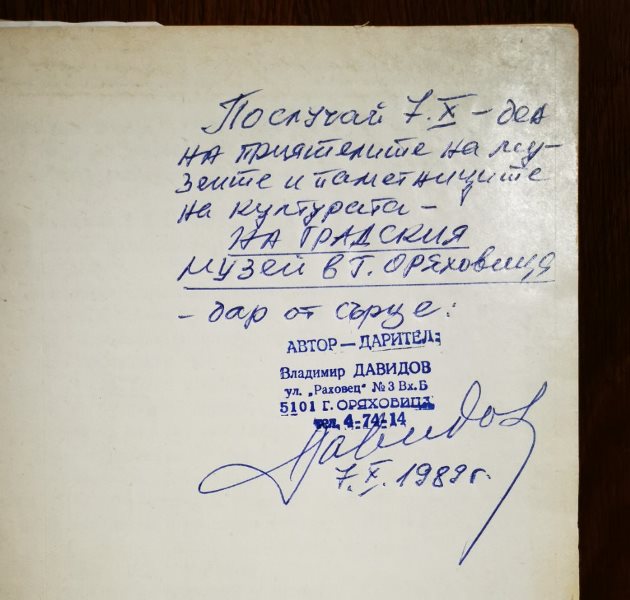 Послучай 7.X – ден
на приятелите на му-
зеите и паметниците
на културата –
НА ГРАДСКИЯ
МУЗЕЙ В Г. ОРЯХОВИЦА
– дар от сърце:
АВТОР — ДАРИТЕЛ:
Владимир ДАВИДОВ
ул. „Раховец" № 3 Вх. Б
5101 Г. ОРЯХОВИЦА
тел. 4-74-14
Давидов
7.X.1989г.